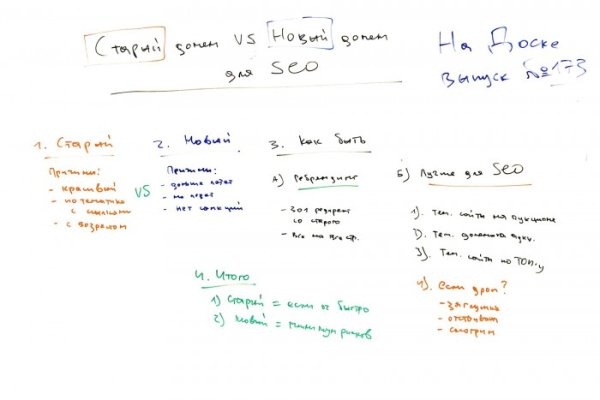 Старый домен VS Новый домен
для SEO
На Доске
выпуск №173
1. Старый
Причины:
- красивый
- по тематике
с ссылками
- с возрастом
VS
2. Новый
Причины:
- дольше
- не
- нет санкций
3. Как быть
А) Ребрендинг
- 301 редирект
со старого
- Все на все стр.
Б) Лучше для SEO
1). Тем. сайты на аукционе
2). Тем. домена аукц.
3). Тем. сайты по ТОП-у
4). Если дроп?
- заглушка
- отстоялся
- смотрим
4. Итого
1) Старый = если оч быстро
2) Новый = минимум рисков